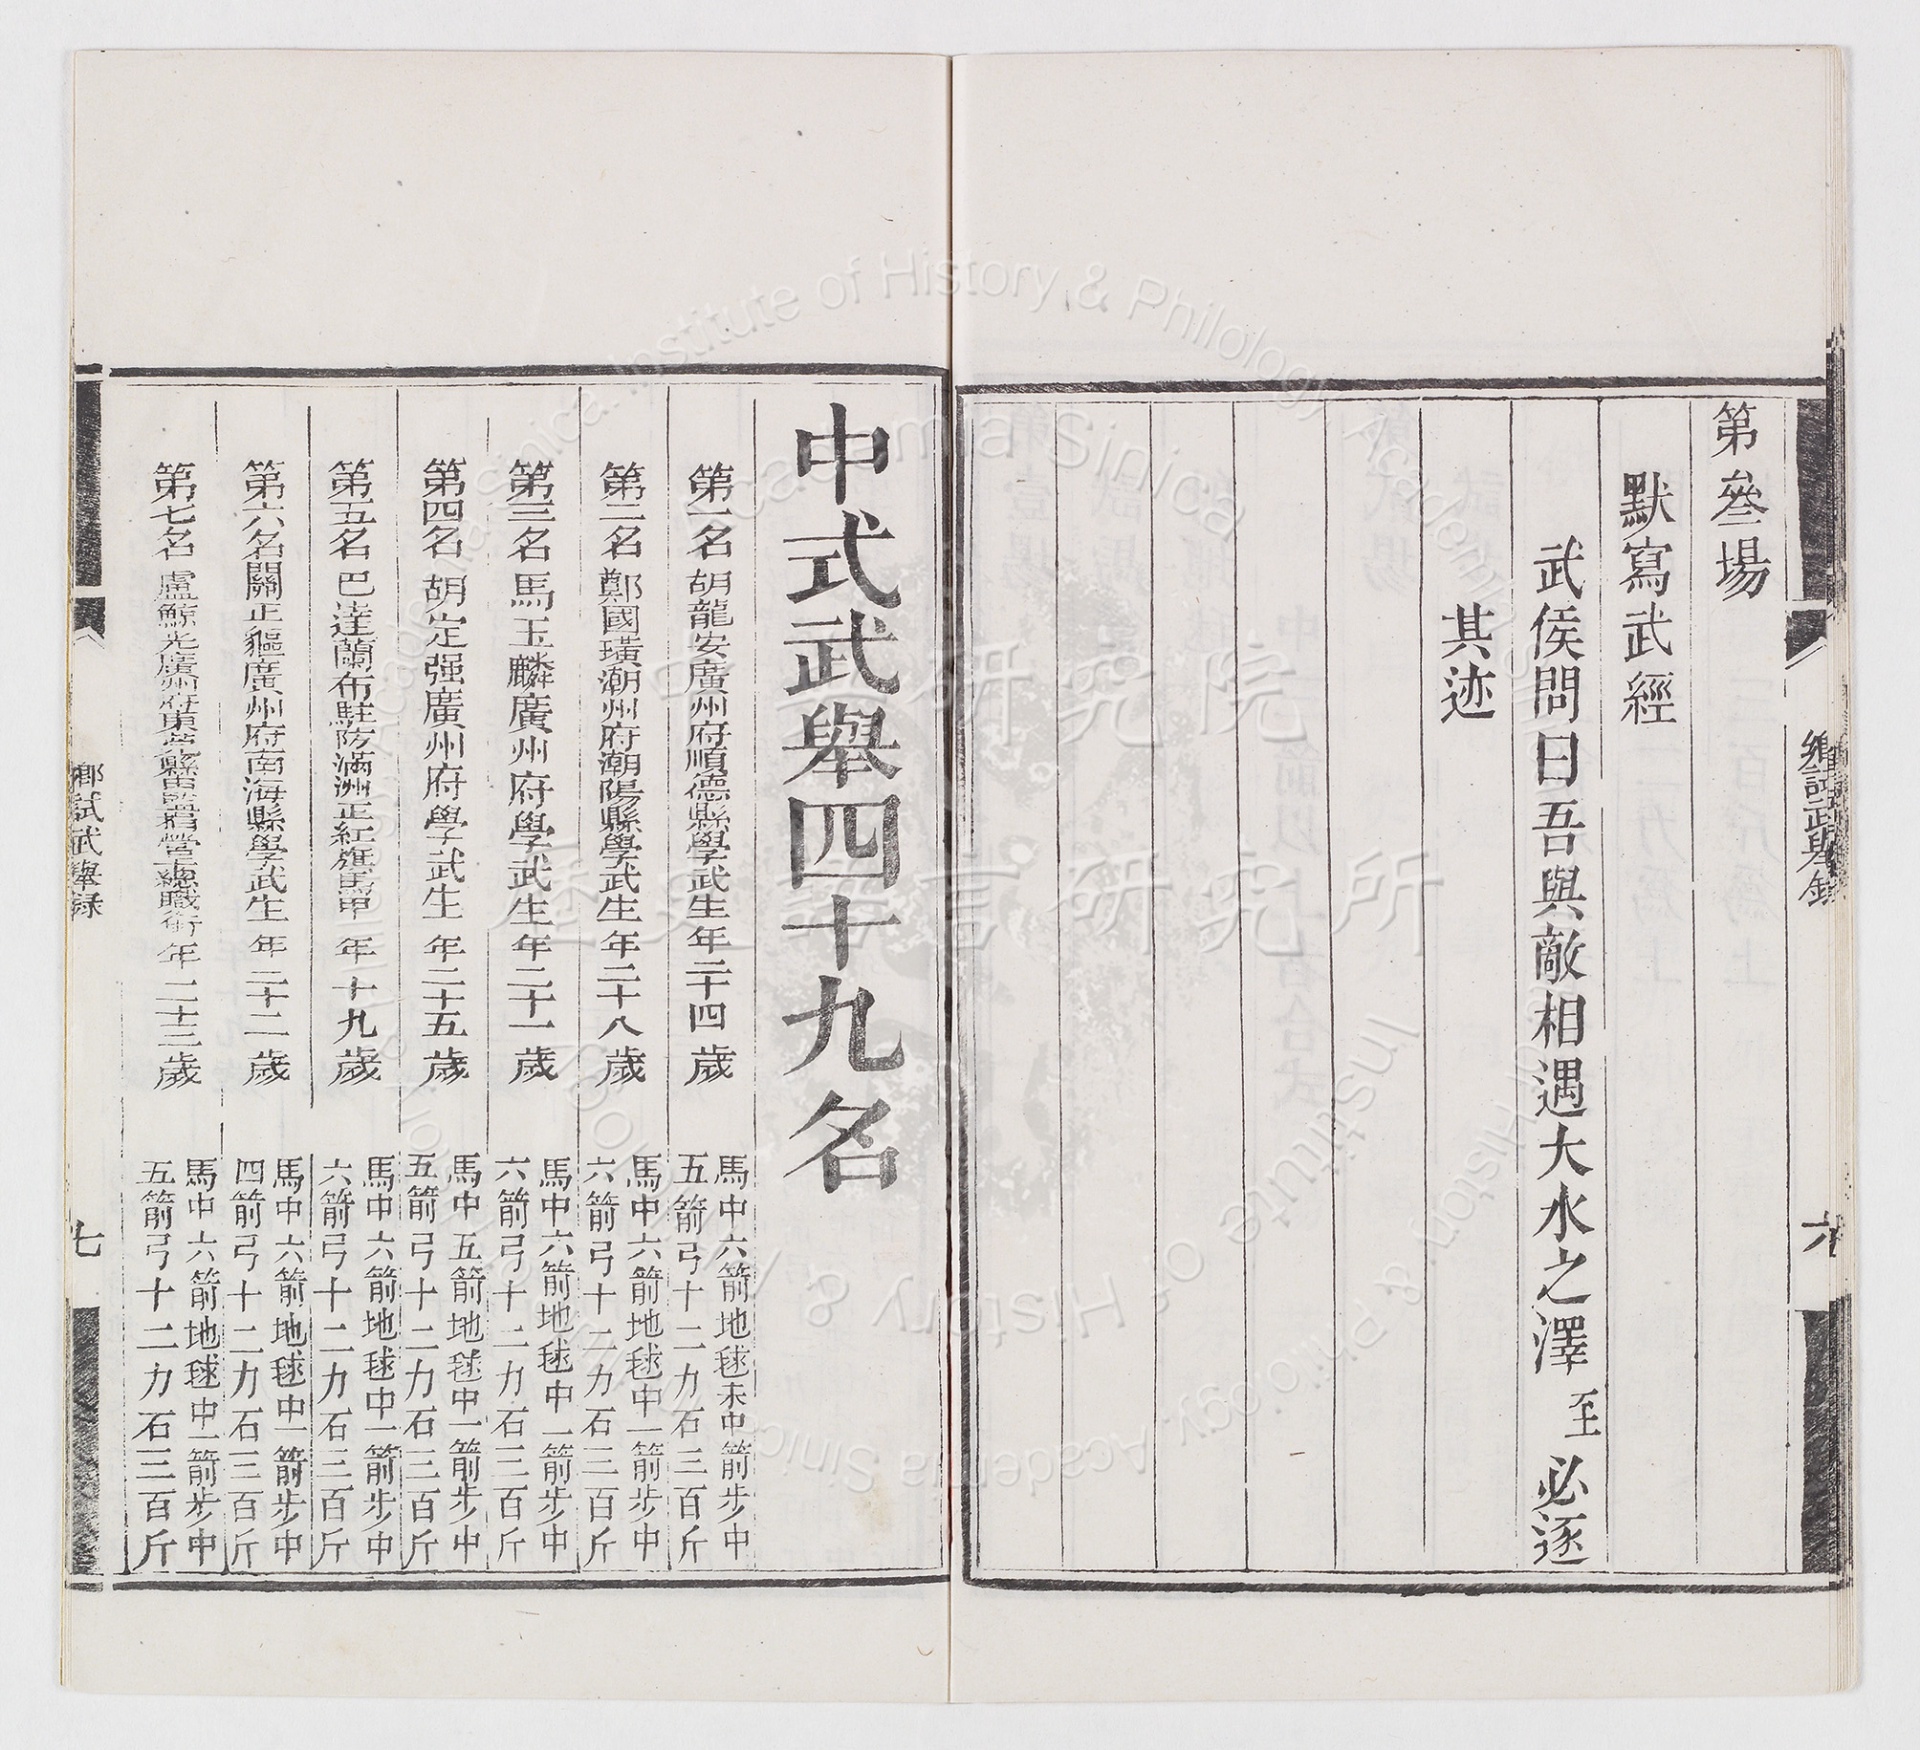 第叄場
默寫武經
武侯問曰吾與敵相遇大水之澤至必逐
其迹
六
中式武舉四十九名
第一名胡龍安廣州府順德縣學武生年二十四歲
馬中六箭地毬未中箭步中
五箭弓十二力石三百斤
第二名鄭國璜潮州府潮陽縣學武生年二十八歲
馬中六箭地毬中一箭步中
六箭弓十二力石三百斤
第三名馬玉麟廣州府學武生年二十一歲
馬中六箭地毬中一箭步中
六箭弓十二力石三百斤
第四名胡定强廣州府學武生年二十五歲
馬中五箭地毬中一箭步中
五箭弓十二力石三百斤
第五名巴達蘭布駐防滿洲正紅旗馬甲年十九歲
馬中六箭地毬中一箭步中
六箭弓十二力石三百斤
第六名關正驅廣州府南海縣學武生年二十二歲
馬中六箭地毬中一箭步中
四箭弓十二力石三百斤
第七名盧鯨光廣州府東莞縣武監捐營千總職銜年二十三歲
馬中六箭地毬中一箭步中
五箭弓十二力石三百斤
鄉試武舉錄
七
中央研究院
歷史語言研究所
Academia Sinica
Institute of History & Philology